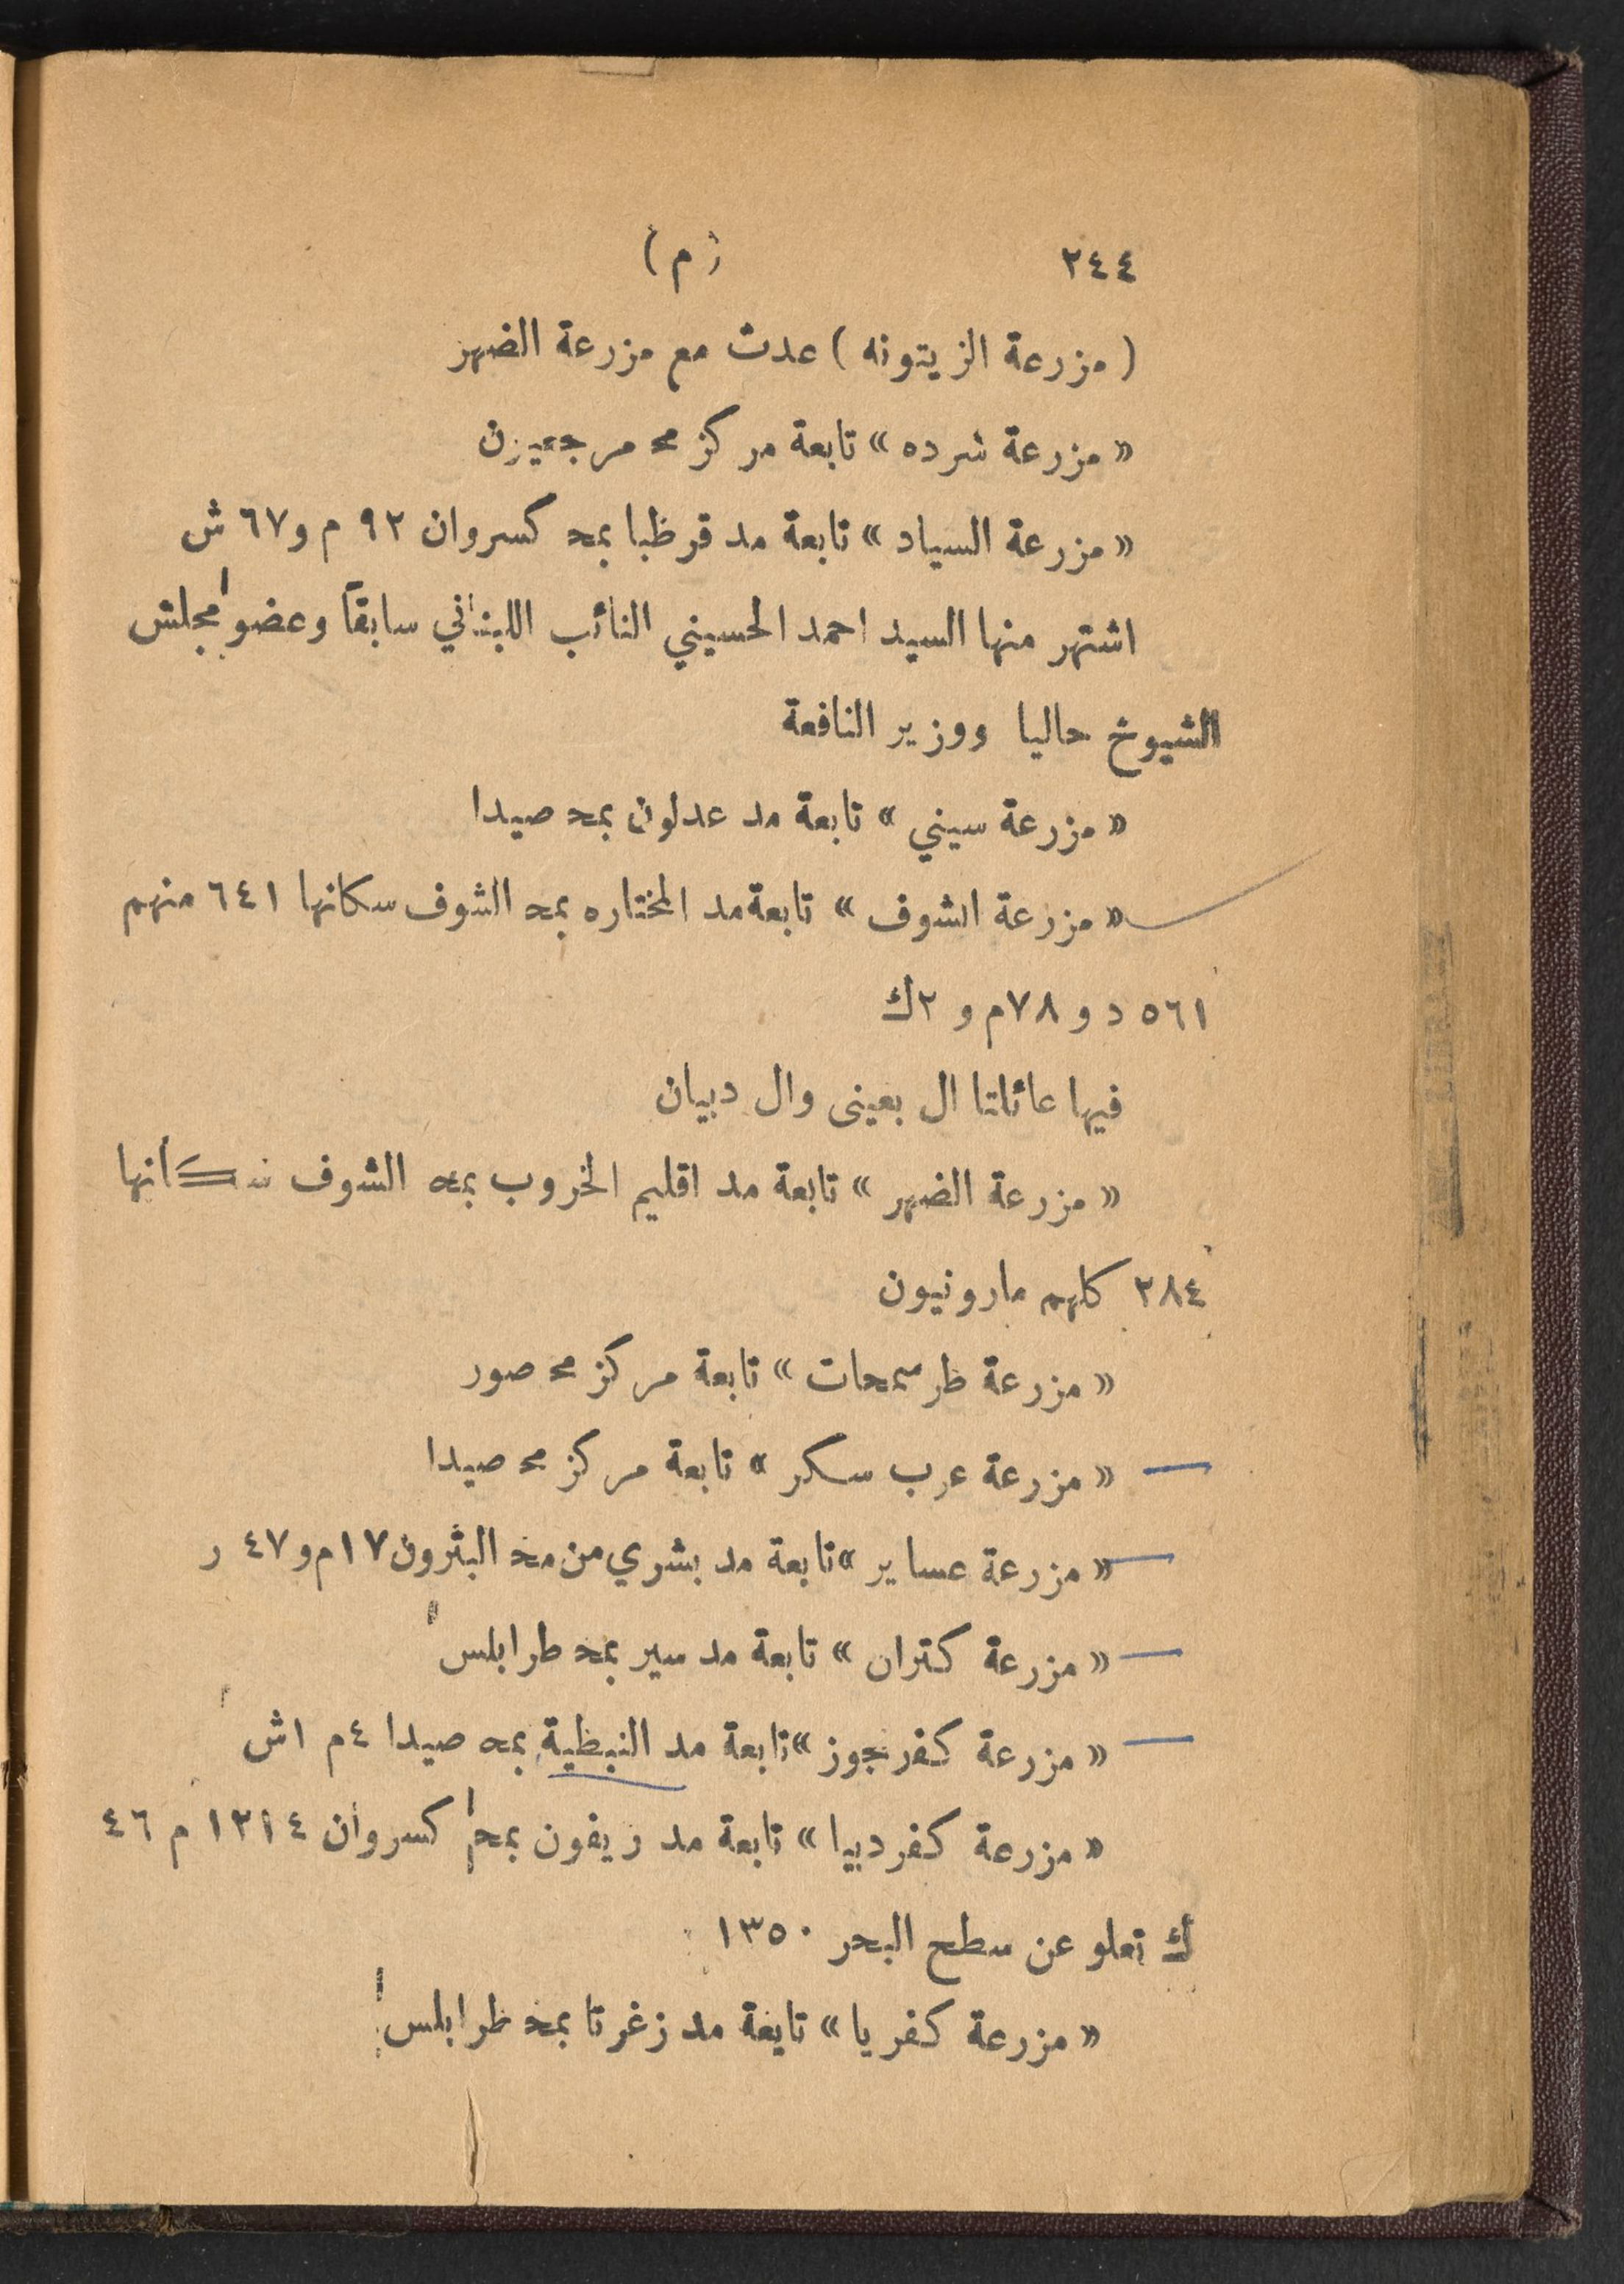 ٢٤٤ (م)
(مزرعة الزيتونه) عدت مع مزرعة الضهر
«مزرعة شرده» تابعة مركز محـ مرجعيون
«مزرعة السياد» تابعة مد قرظبا بمحـ كسروان ٩٢ م و٦٧ ش
اشتهر منها السيد احمد الحسيني النائب اللبناني سابقاً وعضو مجلس
الشيوخ حاليا ووزير النافعة
«مزرعة سيني» تابعة مد عدلون بمحـ صيدا
«مزرعة الشوف» تابعة مد المختاره بمحـ الشوف سكانها ٦٤١ منهم
٥٦١ د و ٧٨م و ٢ك
فيها عائلتا ال بعيني وال دبيان
«مزرعة الضهر» تابعة مد اقليم الخروب بمحـ الشوف سكانها
٢٨٤ كلهم مارونيون
«مزرعة طرسمحات» تابعة مركز محـ صور
«مزرعة عرب سكر» تابعة مركز محـ صيدا
«مزرعة عساير» تابعة مد بشري من محـ البترون ١٧م و٤٧ ر
«مزرعة كتران» تابعة مد سير بمحـ طرابلس
«مزرعة كفرجوز» تابعة مد النبطية بمحـ صيدا ٤م ١ش
«مزرعة كفردبيا» تابعة مد ريفون بمحـ كسروان ١٣١٤ م ٤٦
ك تعلو عن سطح البحر ١٣٥٠
«مزرعة كفريا» تابعة مد زغرتا بمحـ طرابلس